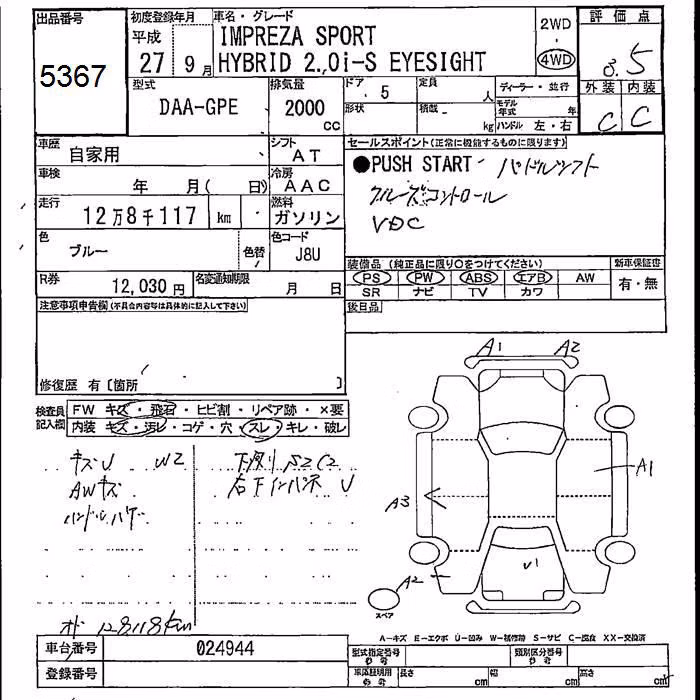 出品番号
5367
初度登録年月
平成
27 9月
車名・グレード
IMPREZA SPORT
HYBRID 2.0i-S EYESIGHT
2WD
4WD
評価点
3.5
外装 内装
C C
型式
DAA-GPE
排気量
2000
cc
ドア 5
形状
定員
人
積載
kg
ディーラー・並行
モデル年式 年
ハンドル 左・右
車歴
自家用
シフト
AT
車検
年 月( 日)
冷房
AAC
走行
12万8千117 km
燃料
ガソリン
色
ブルー
色替
色コード
J8U
R券
12,030円
名変通知期限
月 日
セールスポイント(正常に機能するものに限ります)
●PUSH START パドルシフト
クルーズコントロール
VDC
装備品 (純正品に限り○をつけてください)
PS PW ABS エアB AW
SR ナビ TV カワ
新車保証書
有・無
後日品
注意事項申告欄(不具合内容等は具体的に記入して下さい)
修復歴 有〔箇所 〕
検査員記入欄
FW キズ・飛石・ヒビ割・リペア跡・×要
内装 キズ・汚レ・コゲ・穴・スレ・キレ・破レ
キズU W2
AWキズ
下廻り S2C2
右下インパネ U
オド 128118km
A1 A2
A1
A3
A2
U1
スペア
A-キズ E-エクボ U-凹み W-補修跡 S-サビ C-腐食 XX-交換済
車台番号
024944
登録番号
型式指定番号
参考
類別区分番号
参考
車庫証明用
参考
長さ cm
幅 cm
高さ cm